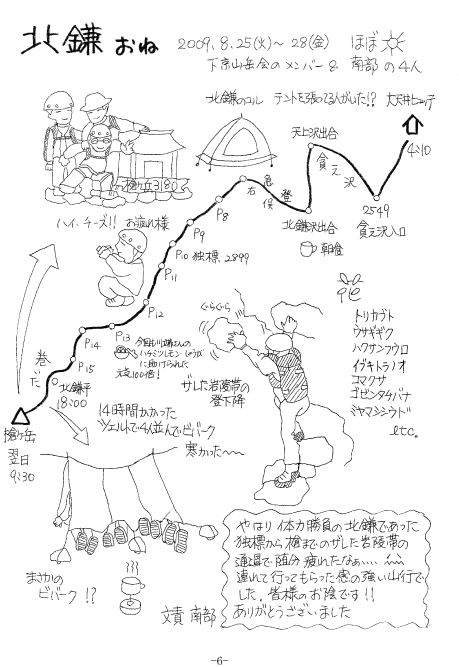 北鎌 おね
2009.8.25(火)～28(金) ほぼ
下京山岳会のメンバー& 南部の4人
北鎌のコル テントを張ってる3人がいた!? 大天井ヒュッテ
4:10
天上沢出合
貧乏沢
2549
貧乏沢入口
北鎌沢出合
朝食
急登
右俣
P8
P9
P10 独標 2899
P11
P12
P13
P14
P15
北鎌平
18:00
槍ヶ岳
翌日
9:30
巻いた
槍ヶ岳3180
ハイ、チーズ!! お疲れ様
ハチミツレモンしょうが
に助けられた
元気100倍!
ぐらぐら
ザレた岩陵帯の
登下降
花
トリカブト
ウサギギク
ハクサンフウロ
イブキトラノオ
コマクサ
ゴゼンタチバナ
ミヤマシシウド
etc.
14時間かかった
ツェルトで4人並んでビバーク
寒かった～～
まさかの
ビバーク!?
文責 南部
やはり体力勝負の北鎌であった
独標から槍までのザレた岩陵帯の
通過で随分疲れたなぁ…
連れて行ってもらった感の強い山行で
した。皆様のお陰です!!
ありがとうございました
-6-